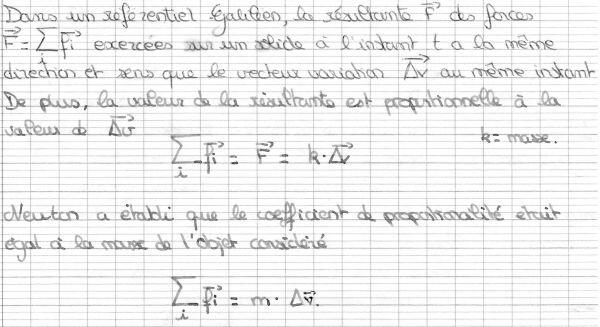 Dans un référentiel Galiléen, la résultante F⃗ des forces
F⃗ = ∑ᵢ f⃗ᵢ exercées sur un solide à l'instant t a la même
direction et sens que le vecteur variation Δv⃗ au même instant
De plus, la valeur de la résultante est proportionnelle à la
valeur de Δv⃗
k = masse.
∑ᵢ f⃗ᵢ = F⃗ = k · Δv⃗
Newton a établi que le coefficient de proportionnalité était
égal à la masse de l'objet considéré
∑ᵢ f⃗ᵢ = m · Δv⃗.